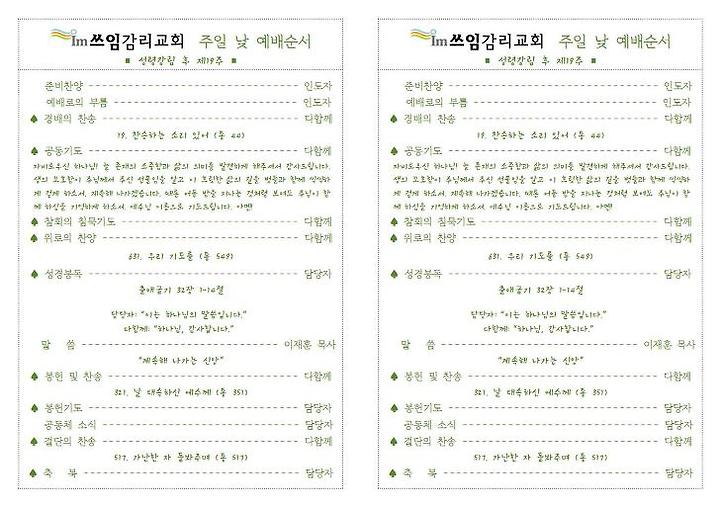 Im쓰임감리교회 주일 낮 예배순서
■ 성령강림 후 제19주 ■
준비찬양 인도자
예배로의 부름 인도자
♠ 경배의 찬송 다함께
19. 찬송하는 소리 있어 (통 44)
♠ 공동기도 다함께
자비로우신 하나님! 늘 존재의 소중함과 삶의 의미를 발견하게 해주셔서 감사드립니다.
생의 모호함이 주님께서 주신 선물임을 알고 이 흐릿한 삶의 길을 벗들과 함께 명랑하
게 걷게 하소서. 계속해 나가겠습니다. 때론 어둔 밤을 지나는 것처럼 보여도 주님이 함
께 하심을 기억하게 하소서. 예수님 이름으로 기도드립니다. 아멘!
♠ 참회의 침묵기도 다함께
♠ 위로의 찬양 다함께
631. 우리 기도를 (통 549)
♠ 성경봉독 담당자
출애굽기 32장 1-14절
담당자: “이는 하나님의 말씀입니다.”
다함께: “하나님, 감사합니다.”
말 씀 이재훈 목사
“계속해 나가는 신앙”
♠ 봉헌 및 찬송 다함께
321. 날 대속하신 예수께 (통 351)
♠ 봉헌기도 담당자
공동체 소식 담당자
♠ 결단의 찬송 다함께
517. 가난한 자 돌봐주며 (통 517)
♠ 축 복 담당자
Im쓰임감리교회 주일 낮 예배순서
■ 성령강림 후 제19주 ■
준비찬양 인도자
예배로의 부름 인도자
♠ 경배의 찬송 다함께
19. 찬송하는 소리 있어 (통 44)
♠ 공동기도 다함께
자비로우신 하나님! 늘 존재의 소중함과 삶의 의미를 발견하게 해주셔서 감사드립니다.
생의 모호함이 주님께서 주신 선물임을 알고 이 흐릿한 삶의 길을 벗들과 함께 명랑하
게 걷게 하소서. 계속해 나가겠습니다. 때론 어둔 밤을 지나는 것처럼 보여도 주님이 함
께 하심을 기억하게 하소서. 예수님 이름으로 기도드립니다. 아멘!
♠ 참회의 침묵기도 다함께
♠ 위로의 찬양 다함께
631. 우리 기도를 (통 549)
♠ 성경봉독 담당자
출애굽기 32장 1-14절
담당자: “이는 하나님의 말씀입니다.”
다함께: “하나님, 감사합니다.”
말 씀 이재훈 목사
“계속해 나가는 신앙”
♠ 봉헌 및 찬송 다함께
321. 날 대속하신 예수께 (통 351)
♠ 봉헌기도 담당자
공동체 소식 담당자
♠ 결단의 찬송 다함께
517. 가난한 자 돌봐주며 (통 517)
♠ 축 복 담당자